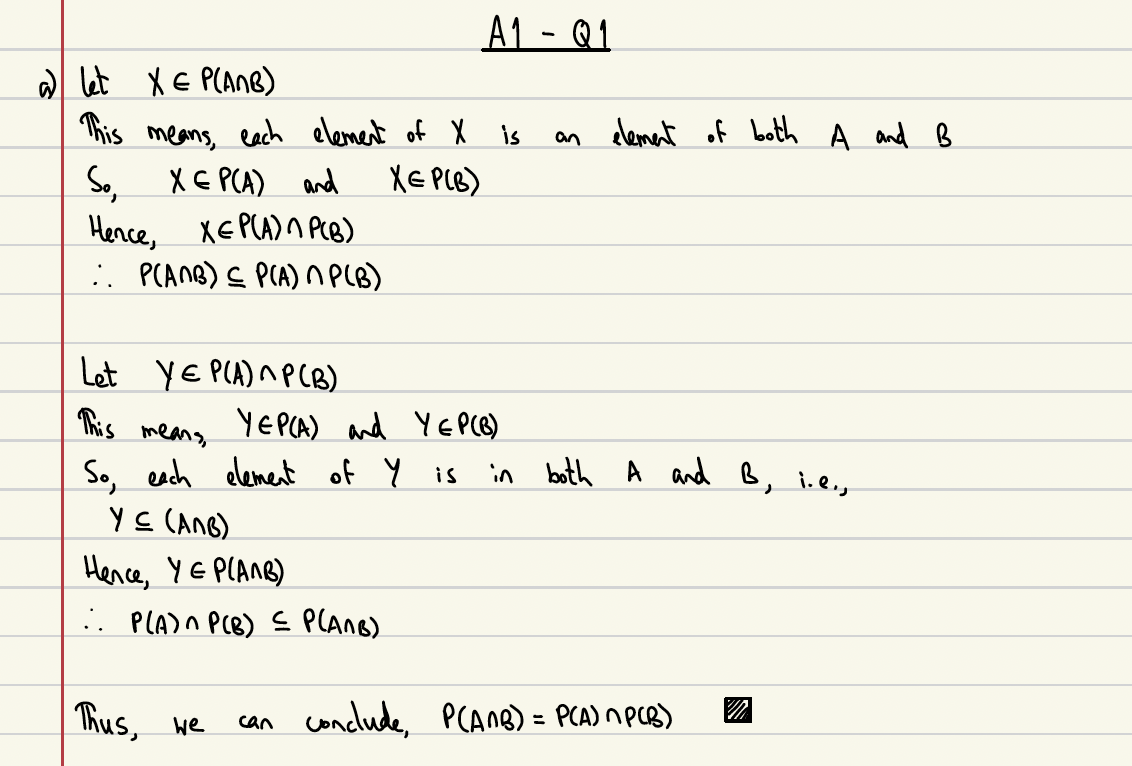 A1 - Q1
a) Let X ∈ P(A∩B)
This means, each element of X is an element of both A and B
So, X ∈ P(A) and X ∈ P(B)
Hence, X ∈ P(A) ∩ P(B)
∴ P(A∩B) ⊆ P(A) ∩ P(B)
Let Y ∈ P(A) ∩ P(B)
This means, Y ∈ P(A) and Y ∈ P(B)
So, each element of Y is in both A and B, i.e.,
Y ⊆ (A∩B)
Hence, Y ∈ P(A∩B)
∴ P(A) ∩ P(B) ⊆ P(A∩B)
Thus, we can conclude, P(A∩B) = P(A) ∩ P(B)